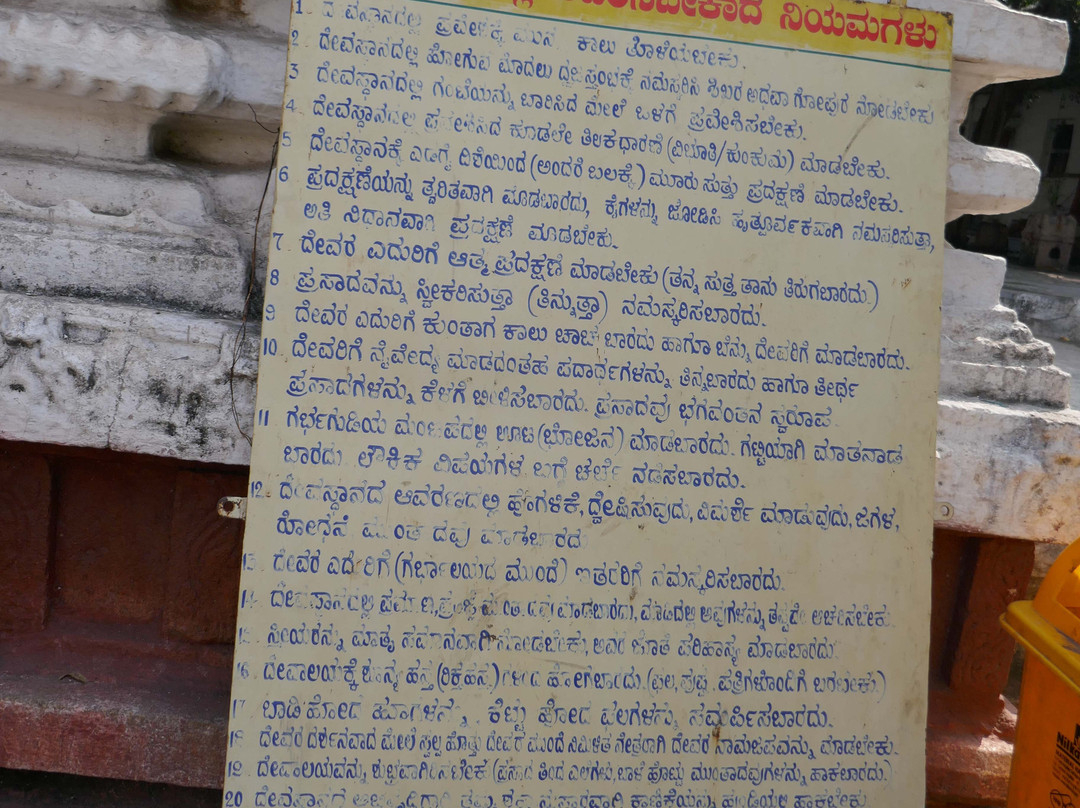 ನಿಯಮಗಳು
1 ಕಾಲು ತೊಳೆಯಬೇಕು.
2 ದೇವಸ್ಥಾನದಲ್ಲಿ ಹೋಗುವ ಮೊದಲು ನಮಸ್ಕರಿಸಿ ಶಿಖರ ಅಥವಾ ಗೋಪುರ ನೋಡಬೇಕು
3 ದೇವಸ್ಥಾನದಲ್ಲಿ ಗಂಟೆಯನ್ನು ಬಾರಿಸಿದ ಮೇಲೆ ಒಳಗೆ ಪ್ರವೇಶಿಸಬೇಕು.
4 ದೇವಸ್ಥಾನದಲ್ಲಿ ಪ್ರವೇಶಿಸಿದ ಕೂಡಲೇ ತಿಲಕಧಾರಣೆ (ವಿಭೂತಿ/ಕುಂಕುಮ) ಮಾಡಬೇಕು.
5 ದೇವಸ್ಥಾನಕ್ಕೆ ಎಡಗೈ ದಿಕೆಯಿಂದ (ಅಂದರೆ ಬಲಕ್ಕೆ) ಮೂರು ಸುತ್ತು ಪ್ರದಕ್ಷಿಣೆ ಮಾಡಬೇಕು.
6 ಪ್ರದಕ್ಷಿಣೆಯನ್ನು ತ್ವರಿತವಾಗಿ ಮಾಡಬಾರದು, ಕೈಗಳನ್ನು ಜೋಡಿಸಿ ಹೃತ್ಪೂರ್ವಕವಾಗಿ ನಮಸ್ಕರಿಸುತ್ತಾ,
ಅತಿ ನಿಧಾನವಾಗಿ ಪ್ರದಕ್ಷಿಣೆ ಮಾಡಬೇಕು.
7 ದೇವರ ಎದುರಿಗೆ ಆತ್ಮ ಪ್ರದಕ್ಷಿಣೆ ಮಾಡಬೇಕು (ತನ್ನ ಸುತ್ತ ತಾನು ತಿರುಗಬಾರದು.)
8 ಪ್ರಸಾದವನ್ನು ಸ್ವೀಕರಿಸುತ್ತಾ (ತಿನ್ನುತ್ತಾ) ನಮಸ್ಕರಿಸಬಾರದು.
9 ದೇವರ ಎದುರಿಗೆ ಕುಂತಾಗ ಕಾಲು ಚಾಚಬಾರದು ಹಾಗೂ ಬೆನ್ನು ದೇವರಿಗೆ ಮಾಡಬಾರದು.
10 ದೇವರಿಗೆ ನೈವೇದ್ಯ ಮಾಡದಂತಹ ಪದಾರ್ಥಗಳನ್ನು ತಿನ್ನಬಾರದು ಹಾಗೂ ತೀರ್ಥ
ಪ್ರಸಾದಗಳನ್ನು ಕೆಳಗೆ ಬೀಳಿಸಬಾರದು. ಪ್ರಸಾದವು ಭಗವಂತನ ಸ್ವರೂಪ.
11 ಗರ್ಭಗುಡಿಯ ಮಂಟಪದಲ್ಲಿ ಊಟ (ಭೋಜನ) ಮಾಡಬಾರದು. ಗಟ್ಟಿಯಾಗಿ ಮಾತನಾಡ
ಬಾರದು. ಲೌಕಿಕ ವಿಷಯಗಳ ಬಗ್ಗೆ ಚರ್ಚೆ ನಡಸಬಾರದು.
12. ದೇವಸ್ಥಾನದ ಆವರಣದಲ್ಲಿ ಹೊಗಳಿಕೆ, ದ್ವೇಷಿಸುವುದು, ವಿಮರ್ಶೆ ಮಾಡುವುದು, ಜಗಳ,
ಮಾಡಬಾರದು
13. ದೇವರ ಎದುರಿಗೆ (ಗರ್ಭಾಲಯದ ಮುಂದೆ) ಇತರರಿಗೆ ನಮಸ್ಕರಿಸಬಾರದು.
14. ಮಾಡಬಾರದು,
15. ಸ್ತ್ರೀಯರನ್ನು ಮಾತೃ ಸಮಾನವಾಗಿ ನೋಡಬೇಕು, ಅವರ ಜೊತೆ ಪರಿಹಾಸ್ಯ ಮಾಡಬಾರದು.
16. ದೇವಾಲಯಕ್ಕೆ ಶೂನ್ಯ ಹಸ್ತ (ರಿಕ್ತಹಸ್ತ) ಹೋಗಬಾರದು. (ಫಲ, ಪುಷ್ಪ, ಪತ್ರಿಗಳೊಂದಿಗೆ ಬರಬೇಕು.)
17. ಬಾಡಿಹೋದ ಹೂಗಳನ್ನು, ಕೆಟ್ಟು ಹೋದ ಫಲಗಳನ್ನು ಸಮರ್ಪಿಸಬಾರದು.
18. ದೇವರ ದರ್ಶನವಾದ ಮೇಲೆ ಸ್ವಲ್ಪ ಹೊತ್ತು ದೇವರ ಮುಂದೆ ನಿಮಿಳಿತ ನೇತ್ರರಾಗಿ ದೇವರ ನಾಮಜಪವನ್ನು ಮಾಡಬೇಕು.
19. ದೇವಾಲಯವನ್ನು (ಪ್ರಸಾದ ತಿಂದ ಎಲೆಗಳು, ಬಾಳೆ ಹೊಟ್ಟು ಮುಂತಾದವುಗಳನ್ನು ಹಾಕಬಾರದು.)
20 ಕಾಣಿಕೆಯನ್ನು ಹಾಕಬೇಕು.